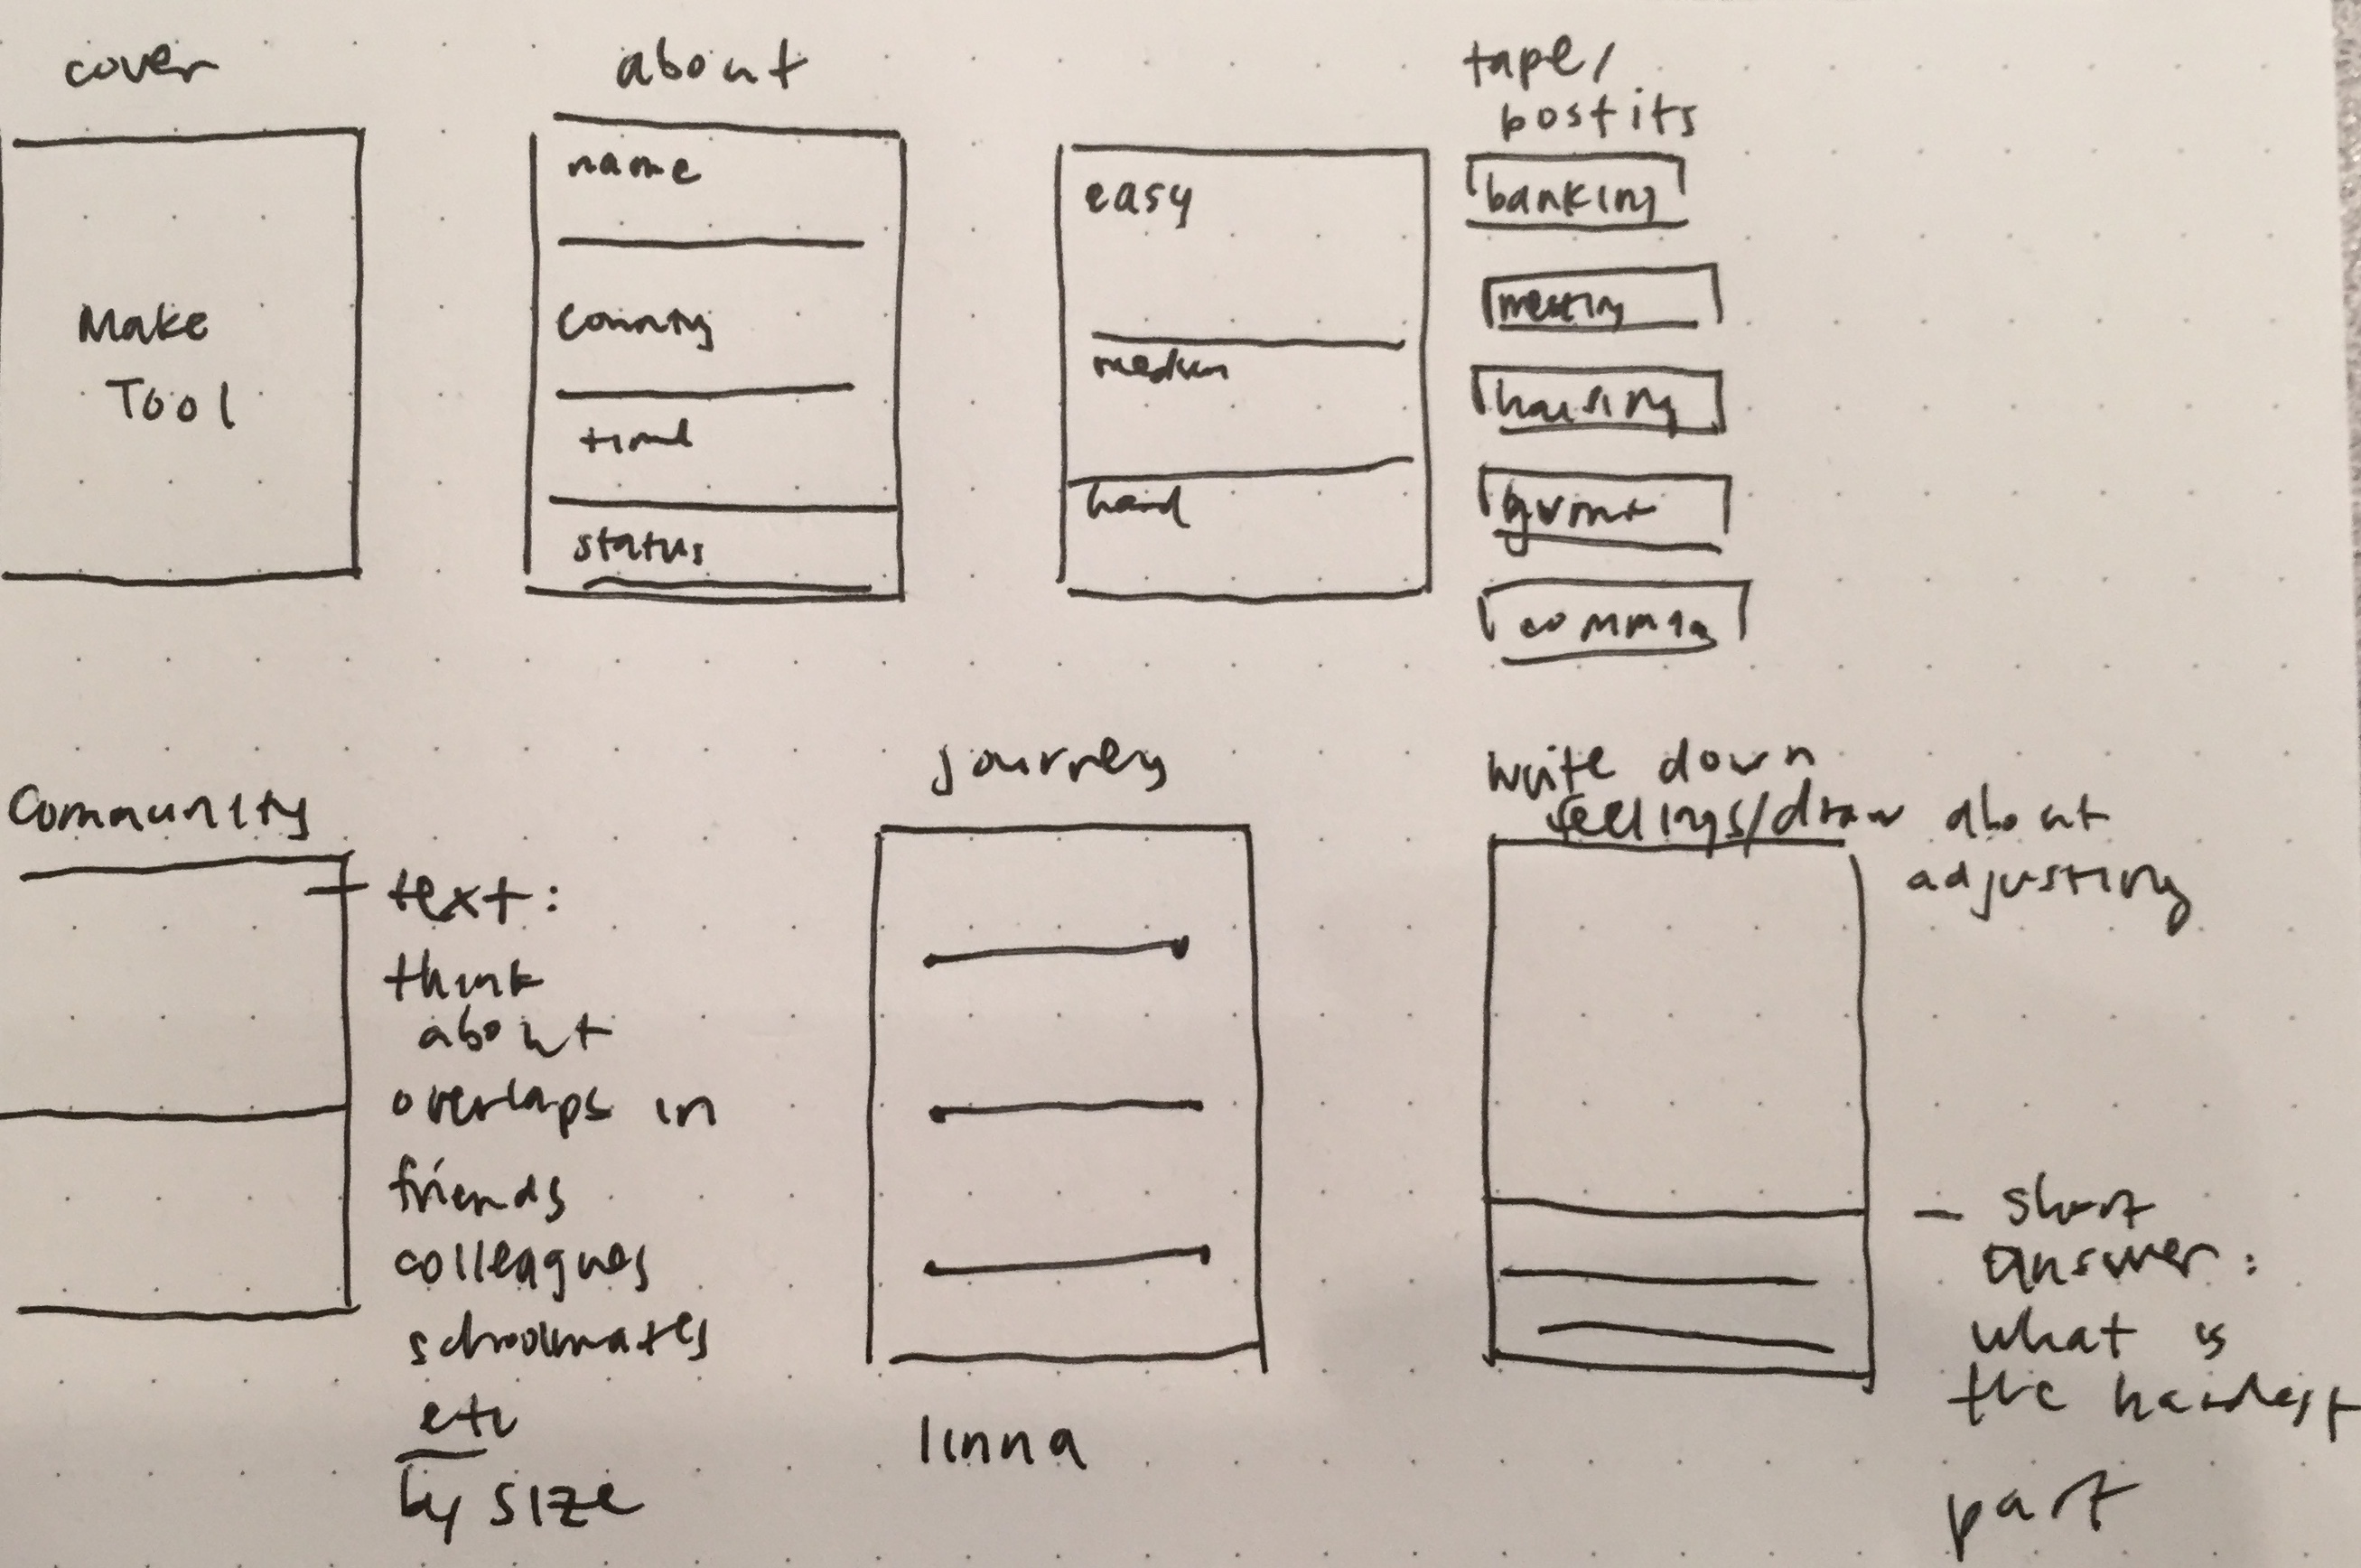 cover
Make
Tool
about
name
country
time
status
easy
medium
hard
tape/
postits
banking
housing
gvmnt
Community
text:
think
about
overlaps in
friends
colleagues
schoolmates
etc
by size
journey
linna
write down
feelings/draw about
adjusting
short
answer:
what is
the hardest
part